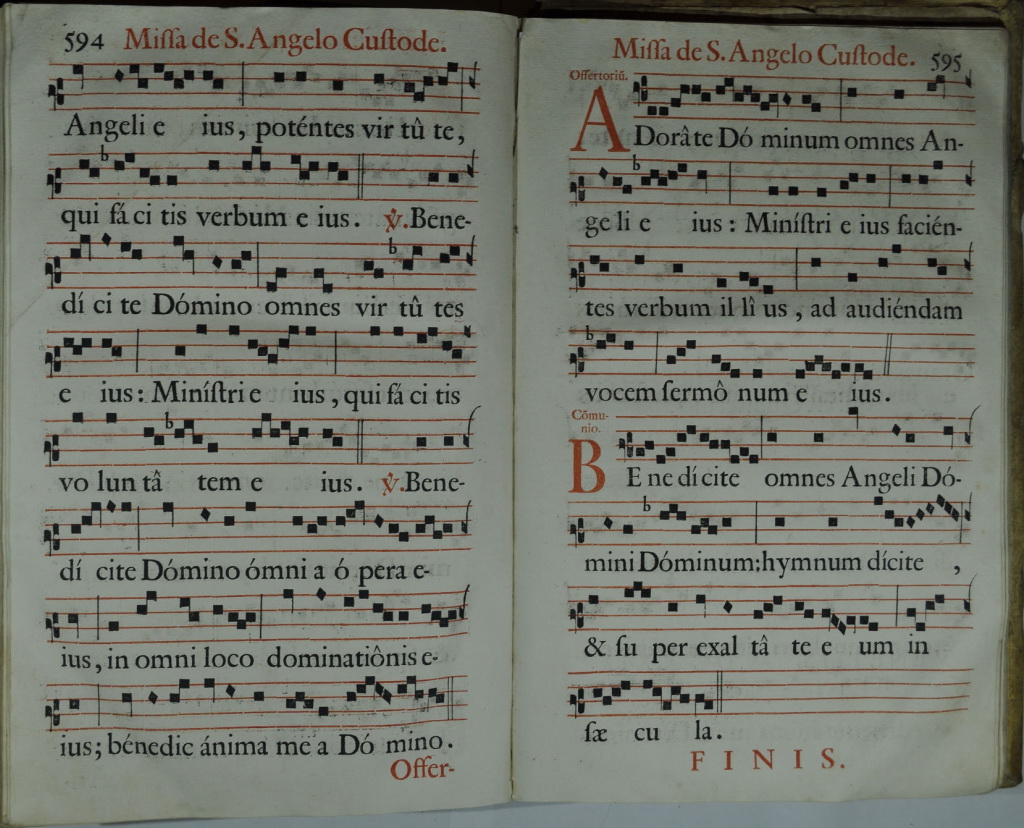 594 Miſſa de S. Angelo Cuſtode.
Angeli e ius, poténtes vir tû te,
qui fá ci tis verbum e ius. ℣. Bene-
dí ci te Dómino omnes vir tû tes
e ius: Miníſtri e ius, qui fá ci tis
vo lun tâ tem e ius. ℣. Bene-
dí cite Dómino ómni a ó pera e-
ius, in omni loco dominatiônis e-
ius; bénedic ánima me a Dó mino.
Offer-
Miſſa de S. Angelo Cuſtode. 595
Offertoriũ.
ADorâte Dó minum omnes An-
ge li e ius: Miníſtri e ius facién-
tes verbum il lî us, ad audiéndam
vocem ſermô num e ius.
Cõmu-
nio.
BE ne dí cite omnes Angeli Dó-
mini Dóminum: hymnum dícite,
& ſu per exal tâ te e um in
ſæ cu la.
FINIS.